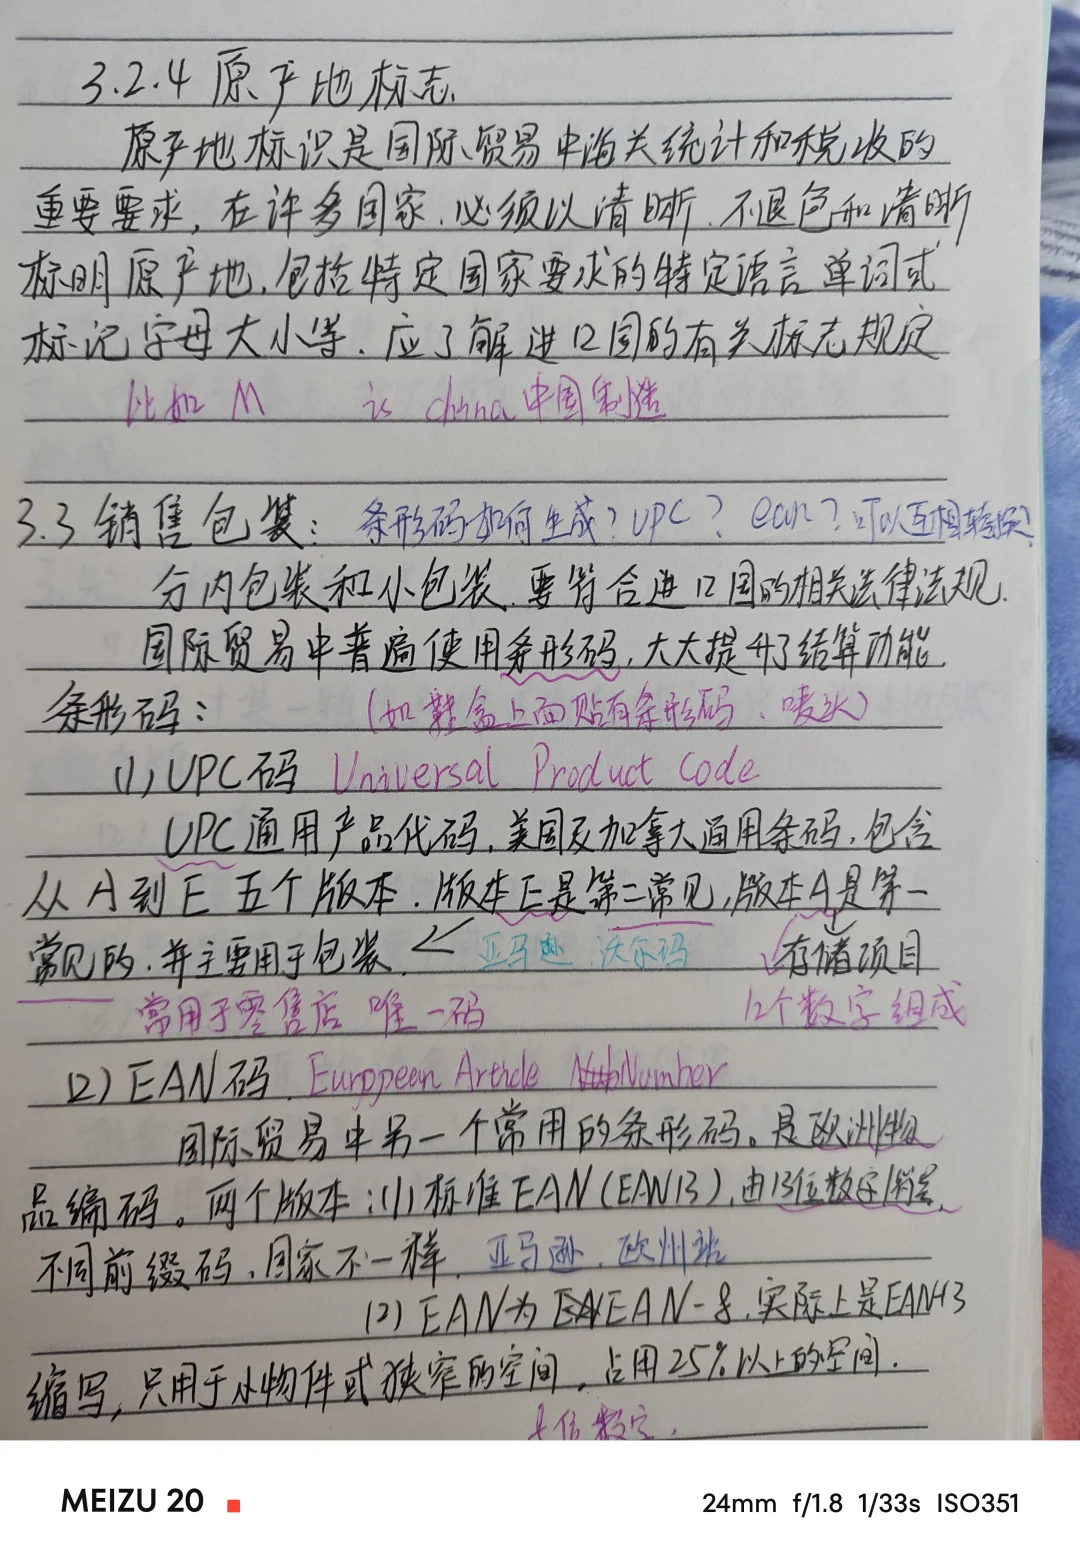 3.2.4 原产地标志.
原产地标识是国际贸易中海关统计和税收的
重要要求, 在许多国家. 必须以清晰. 不退色和清晰
标明原产地, 包括特定国家要求的特定语言 单词或
标记字母大小等. 应了解进口国的有关标志规定
比如 M is china 中国制造
3.3 销售包装: 条形码如何生成? UPC? ean? 可以互相转换?
分内包装和小包装. 要符合进口国的相关法律法规.
国际贸易中普遍使用条形码, 大大提升了结算功能.
条形码: (如鞋盒上面贴有条形码、唛头)
(1) UPC码 Universal Product Code
UPC通用产品代码, 美国及加拿大通用条码. 包含
从A到E 五个版本. 版本E是第二常见, 版本A是第一
常见的. 并主要用于包装. 亚马逊. 沃尔玛 存储项目
常用于零售店 唯一码 12个数字组成
(2) EAN码. Europpeen Article Number
国际贸易中另一个常用的条形码。是欧洲物
品编码。两个版本: (1) 标准EAN (EAN13). 由13位数字
不同前缀码. 国家不一样. 亚马逊. 欧州站
(2) EAN为 EAN-8. 实际上是EAN13
缩写, 只用于小物件或狭窄的空间, 占用25%以上的空间.
位数字.
MEIZU 20
24mm f/1.8 1/33s ISO351